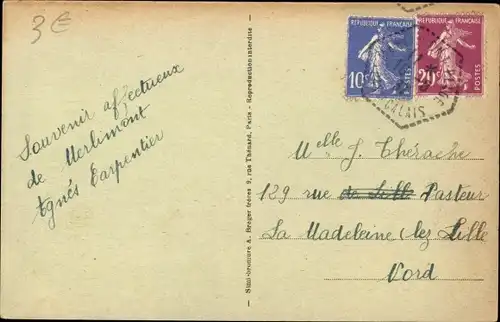 3€
Souvenir affectueux
de Merlimont
Agnès Carpentier
Simi-bromure A. Breger frères 9, rue Thénard, Paris - Reproduction interdite
REPUBLIQUE FRANÇAISE
10c
POSTES
REPUBLIQUE FRANÇAISE
20c
POSTES
CALAIS
Melle J. Thérache
129 rue de Lille Pasteur
La Madeleine (lez Lille
Nord